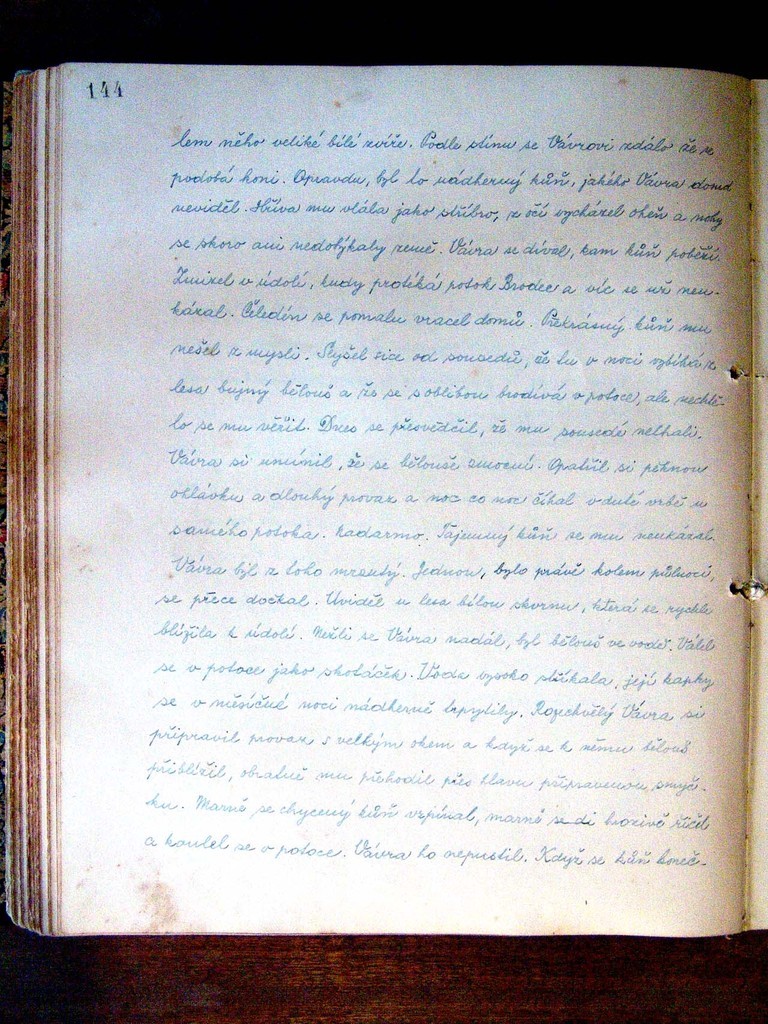 144
lem něho veliké bílé zvíře. Podle stínu se Vávrovi zdálo že se
podobá koni. Opravdu, byl to nádherný kůň, jakého Vávra dosud
neviděl. Hříva mu vlála jako stříbro, z očí vycházel oheň a nohy
se skoro ani nedotýkaly země. Vávra se díval, kam kůň poběží.
Zmizel v údolí, kudy protéká potok Brodec a víc se už neu-
kázal. Čeledín se pomalu vracel domů. Překrásný kůň mu
nešel z mysli. Slyšel sice od sousedů, že tu v noci vybíhá z
lesa bujný bělouš a že se s oblibou brodívá v potoce, ale nechtě-
lo se mu věřit. Dnes se přesvědčil, že mu sousedé nelhali.
Vávra si umínil, že se bělouše zmocní. Opatřil si pěknou
ohlávku a dlouhý provaz a noc co noc číhal v duté vrbě u
samého potoka. Nadarmo. Tajemný kůň se mu neukázal.
Vávra byl z toho mrzutý. Jednou, bylo právě kolem půlnoci,
se přece dočkal. Uviděl u lesa bílou skvrnu, která se rychle
blížila k údolí. Nežli se Vávra nadál, byl bělouš ve vodě. Válel
se v potoce jako skotáček. Voda vysoko stříkala, její kapky
se v měsíčné noci nádherně trpytily. Rozechvělý Vávra si
připravil provaz s velkým okem a když se k němu bělouš
přiblížil, obratně mu přehodil přes hlavu připravenou smyč-
ku. Marně se chycený kůň vzpínal, marně se di hrozivě řičel
a koulel se v potoce. Vávra ho nepustil. Když se kůň koneč-